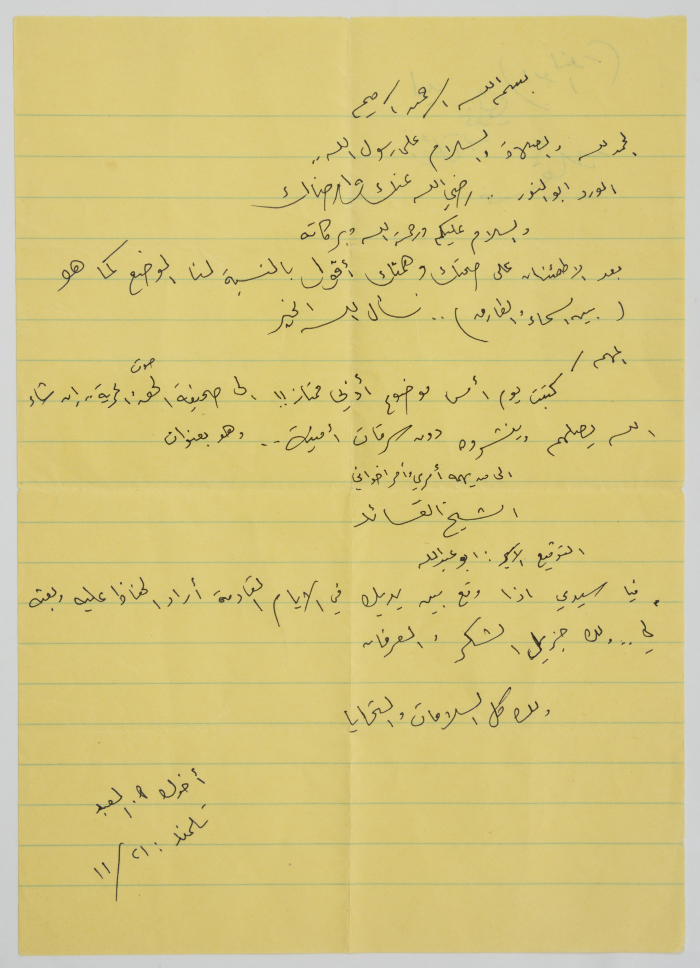 بسم الله الرحمن الرحيم
الحمد لله والصلاة والسلام على رسول الله ..
الورد ابو النور .. رضي الله عنك وارضاك
والسلام عليكم ورحمة الله وبركاته
بعد الاطمئنان على صحتك وهمتك أقول بالنسبة لنا الوضع كما هو
( بين السماء والطارق ) .. نسأل الله الخير
المهم /
كتبت يوم أمس موضوع أدبي ممتاز !! الى صحيفة صوت الحق والحرية .. إن شاء
الله يصلهم وينشروه دون سرقات أمنية .. وهو بعنوان
الى من يهمه أمري وأمر اخواني
الشيخ القائد
التوقيع الأسير : ابو عبدالله
فيا سيدي اذا وقع بين يديك في الايام القادمة أراد الحفاظ عليه وبعثه
لي .. ولك جزيل الشكر والعرفان
ولك كل السلامات والتحايا
أخوك العبد
تلموند : ٢١ / ١١